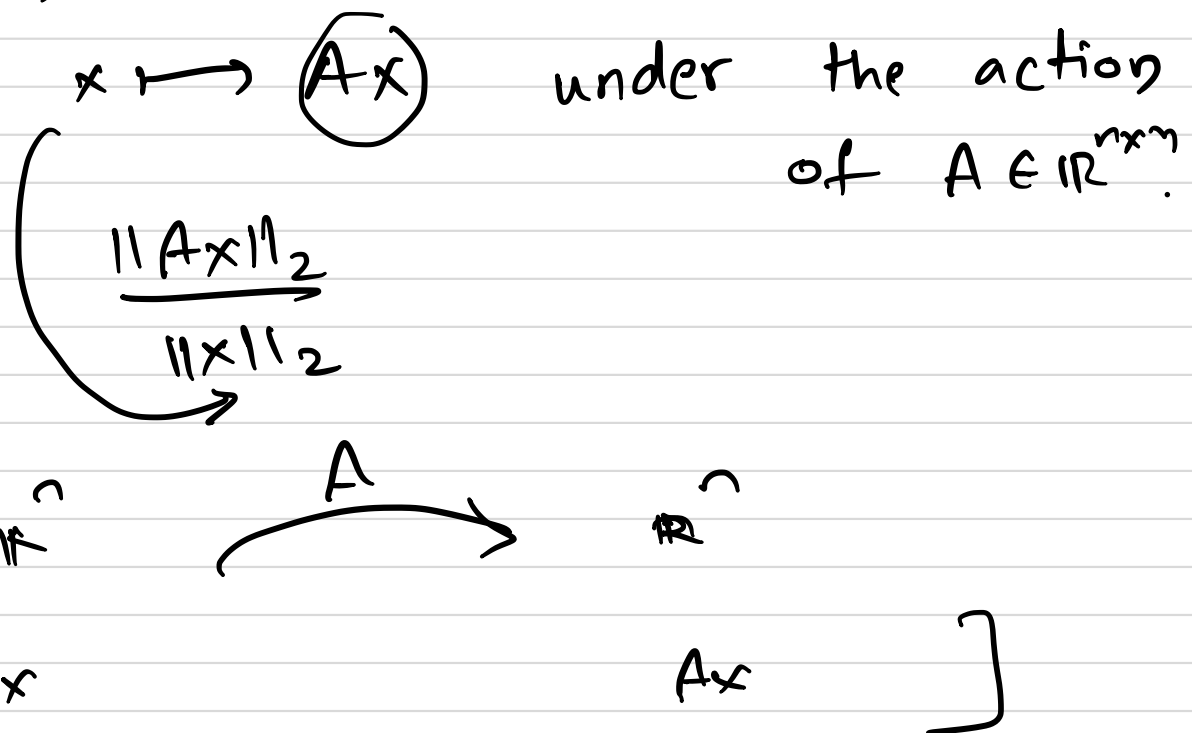 x ↦ Ax under the action
of A ∈ ℝ^{n×n}.
||Ax||₂
||x||₂
A
ℝ^n ℝ^n
x Ax ]